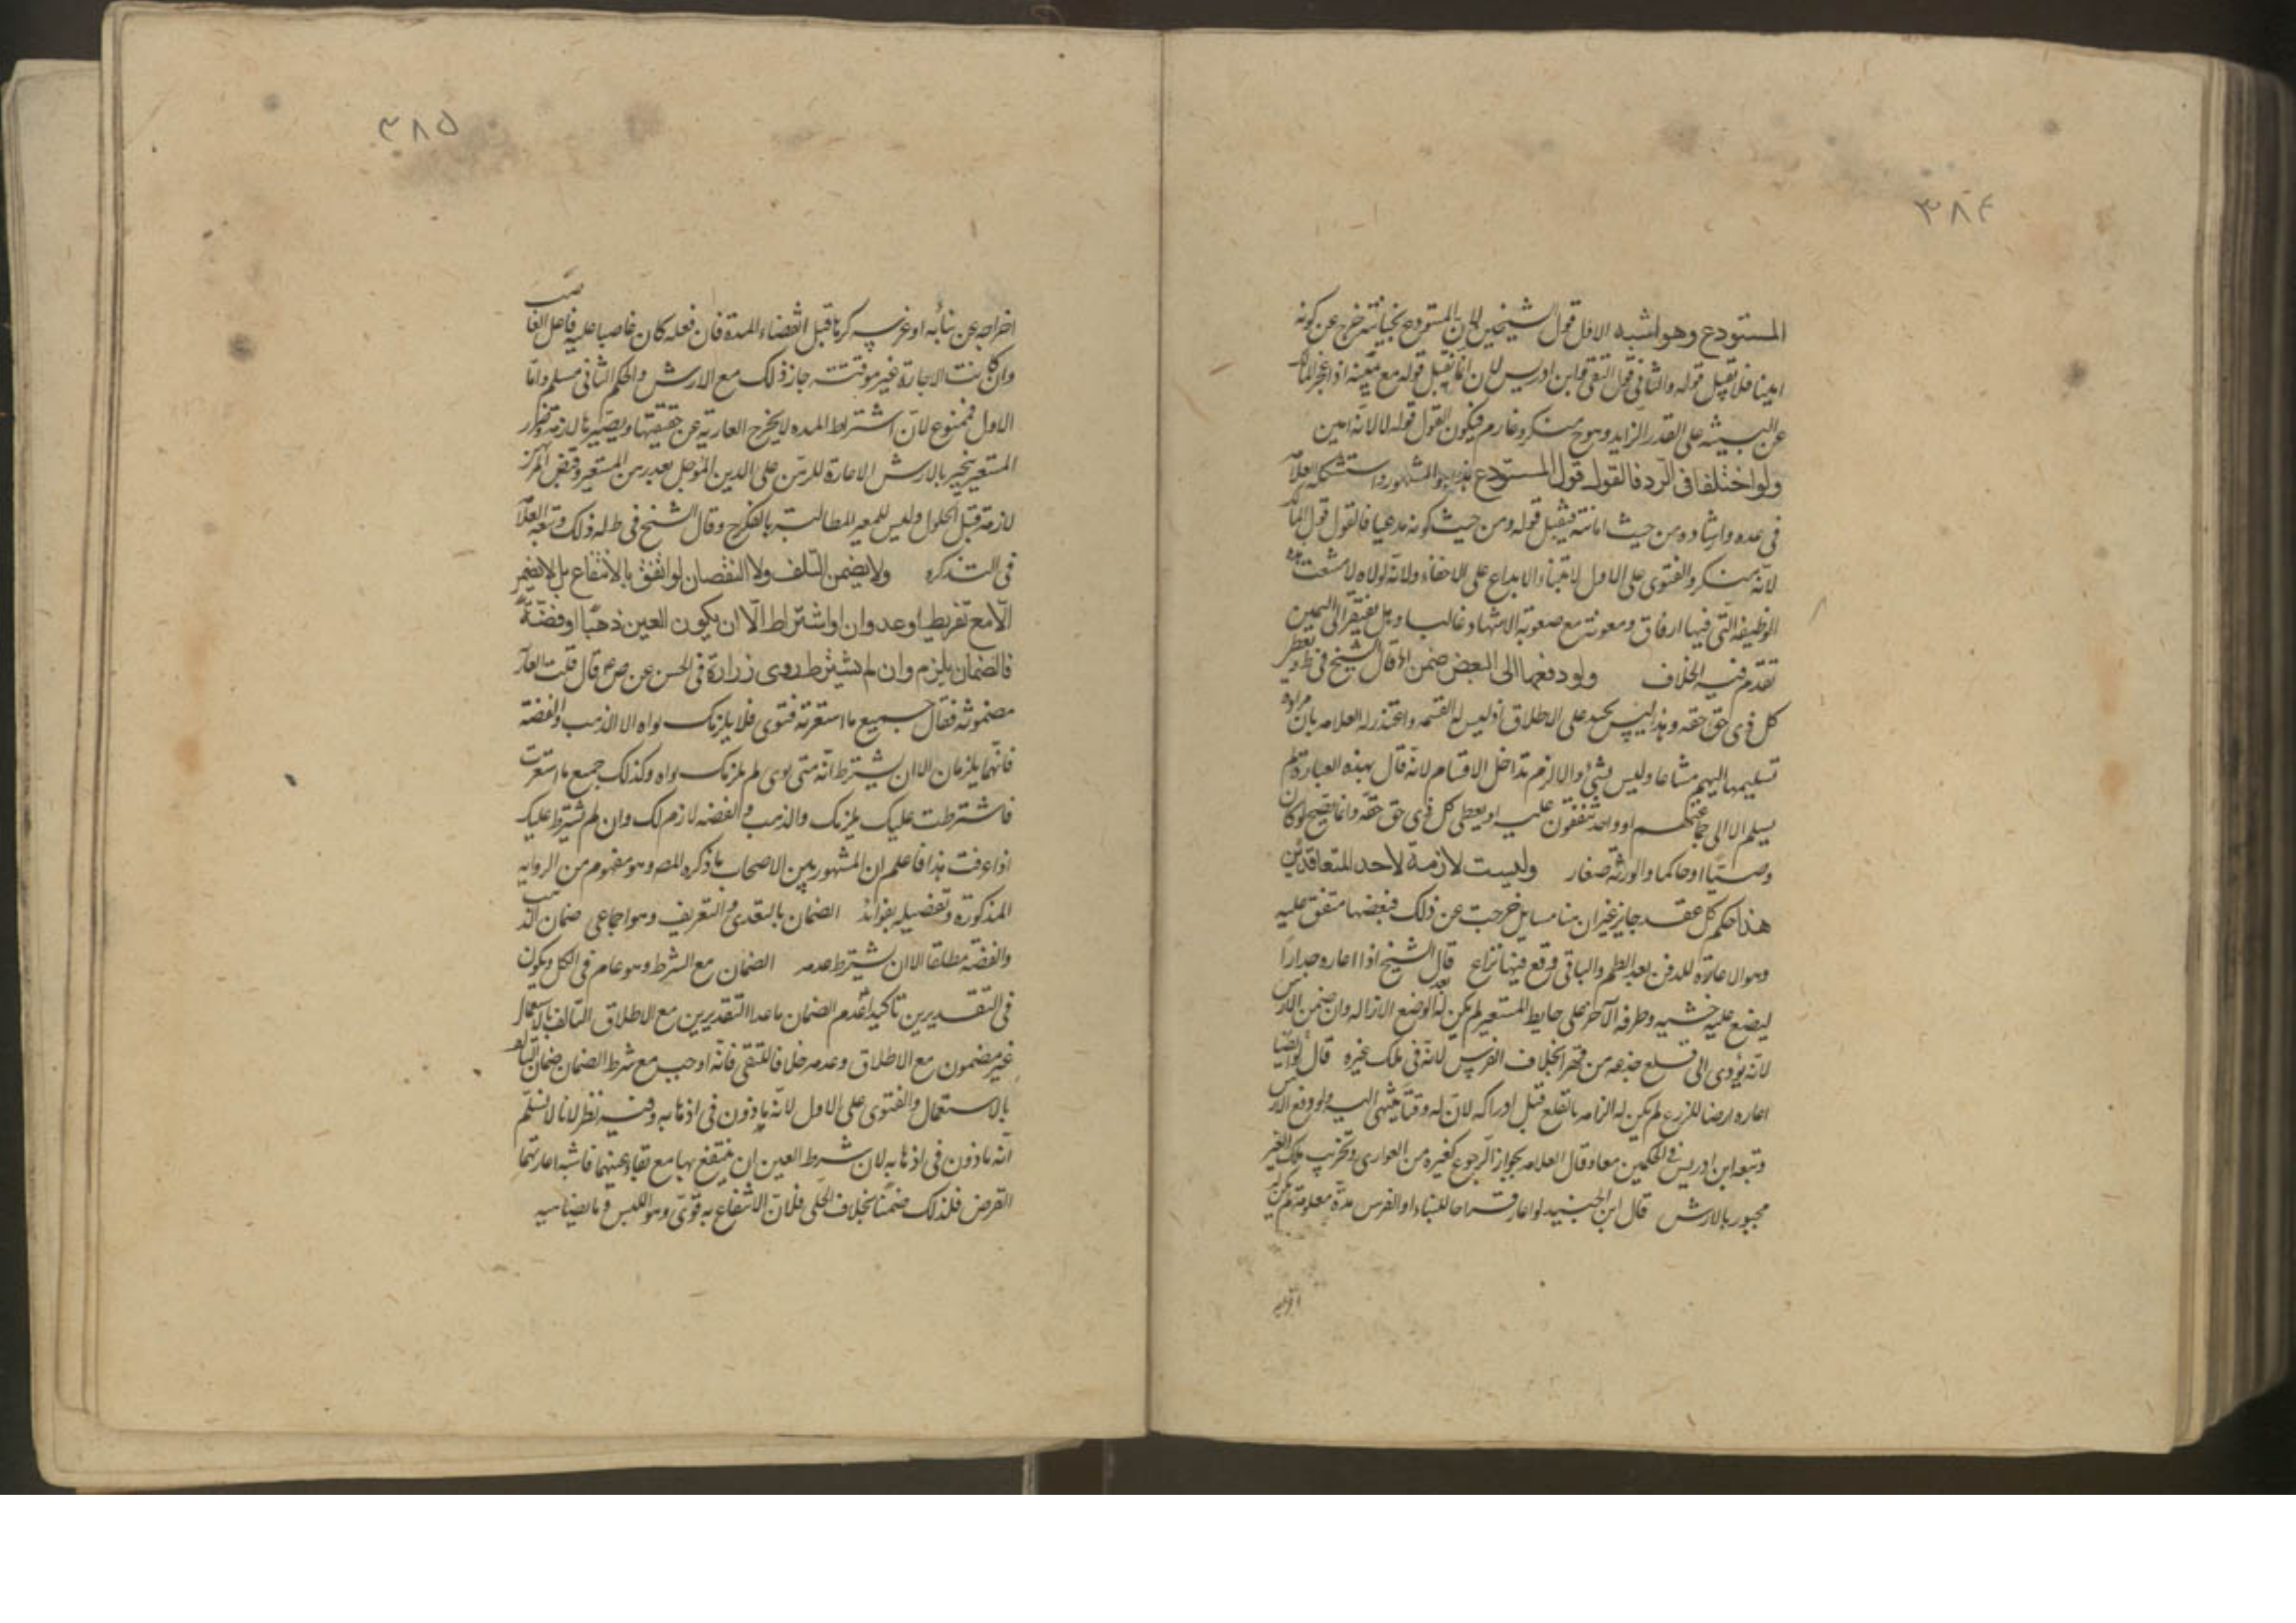 ٣٨٤
المستودع وهو اشبه الاول قول الشيخين لان المستودع بخيانته خرج عن كونه
امينا فلا يقبل قوله والثاني قول التقي وابن ادريس لان انما يقبل قوله مع يمينه اذا عجز المالك
عن البينه على القدر الزايد وهو ح منكر وغارم فيكون القول قوله لا لانه امين
ولو اختلفا في الرد فالقول قول المستودع هذا هو المشهور واستشكله العلامة
في عده وارشاده من حيث امانته فيقبل قوله ومن حيث كونه مدعيا فالقول قول المالك
لانه منكر والفتوى على الاول لابتناء الايداع على الاخفاء ولانه لولاه لامتنعت هذه
الوظيفة التي فيها ارفاق ومعونة مع صعوبة الاشهاد غالبا وهل يفتقر الى اليمين
تقدم فيه الخلاف ولو دفعها الى البعض ضمن اه قال الشيخ في ط ويعطى
كل ذي حق حقه وهذا ليس بجيد على الاطلاق اذ ليس له القسمه واعتذر له العلامه بان مراده
تسليمها اليهم مشاعا وليس بشيء والا لزم تداخل الاقسام لانه قال بهذه العبارة فلم
يسلم الا الى جماعتهم او واحد يتفقون عليه او يعطي كل ذي حق حقه وانما يصح لو كان
وصيا او حاكما والورثة صغار وليست لازمة لاحد المتعاقدين
هذا حكم كل عقد جايز غير ان هنا مسايل خرجت عن ذلك فبعضها متفق عليه
وهو الاعارة للدفن بعد الطم والباقي وقع فيها نزاع قال الشيخ اذا اعاره جدارا
ليضع عليه خشبه وطرفه الآخر على حايط المستعير لم يكن له بعد الوضع الازاله وان ضمن الارش
لانه يؤدي الى قلع جذعه من قهرا بخلاف الغرس لانه في ملك غيره قال ايضا لو
اعاره ارضا للزرع لم يكن له الزامه بالقلع قبل ادراكه لان له وقتا ينتهي اليه ولو دفع الارش
وتبعه ابن ادريس في الحكمين معا وقال العلامه بجواز الرجوع كغيره من العواري وتخريب ملك الغير
مجبور بالارش قال ابن الجنيد لو اعار قراحا للبناء او الغرس مدة معلومة لم يكن له
اخراجه
٣٨٥
اخراجه عن بنائه او غرسه كرها قبل انقضاء المدة فان فعله كان غاصبا عليه فاعل الغاصب
وان كانت الاجارة غير موقتته جاز ذلك مع الارش والحكم الثاني مسلم واما
الاول فممنوع لان اشتراط المده لا يخرج العارية عن حقيقتها ويصيرها لازمة وضرر
المستعير يجبر بالارش الاعارة للرهن على الدين المؤجل بعد رهن المستعير وقبض المرتهن
لازمة قبل الحلول وليس للمعير المطالبة بالفك ح وقال الشيخ في ط له ذلك وتبعه العلامة
في التذكره ولا يضمن التلف ولا النقصان لو اتفق بالانتفاع بل لا يضمن
الا مع تفريط او عدوان او اشتراط الا ان يكون العين ذهبا او فضة
فالضمان يلزم وان لم يشترط روى زرارة في الحسن عن ص ع قال قلت العارية
مضمونة فقال جميع ما استعرته فتوى فلا يلزمك تواه الا الذهب والفضة
فانهما يلزمان الا ان يشترط انه متى توى لم يلزمك تواه وكذلك جميع ما استعرت
فاشترطت عليك يلزمك والذهب والفضه لازم لك وان لم يشترط عليك
اذا عرفت هذا فاعلم ان المشهور بين الاصحاب ما ذكره المص وهو مفهوم من الروايه
المذكورة وتفصيله بفوائد الضمان بالتعدي والتفريط وهو اجماعي ضمان الذهب
والفضه مطلقا الا ان يشترط عدمه الضمان مع الشرط وهو عام في الكل ويكون
في النقدين تاكيدا عدم الضمان ما عدا النقدين مع الاطلاق التالف بالاستعمال
غير مضمون مع الاطلاق وعدمه خلافا للتقي فانه اوجب مع شرط الضمان ضمان التالف
بالاستعمال والفتوى على الاول لانه ماذون في اذهابه وفيه نظر لانا لا نسلم
انه ماذون في اذهابه لان شرط العين ان ينتفع بها مع بقاء عينها فاشبه اعارتهما
القرض فلذلك ضمنا بخلاف الحلي فلان الانتفاع به قوي وهو اللبس وما يضاهيه